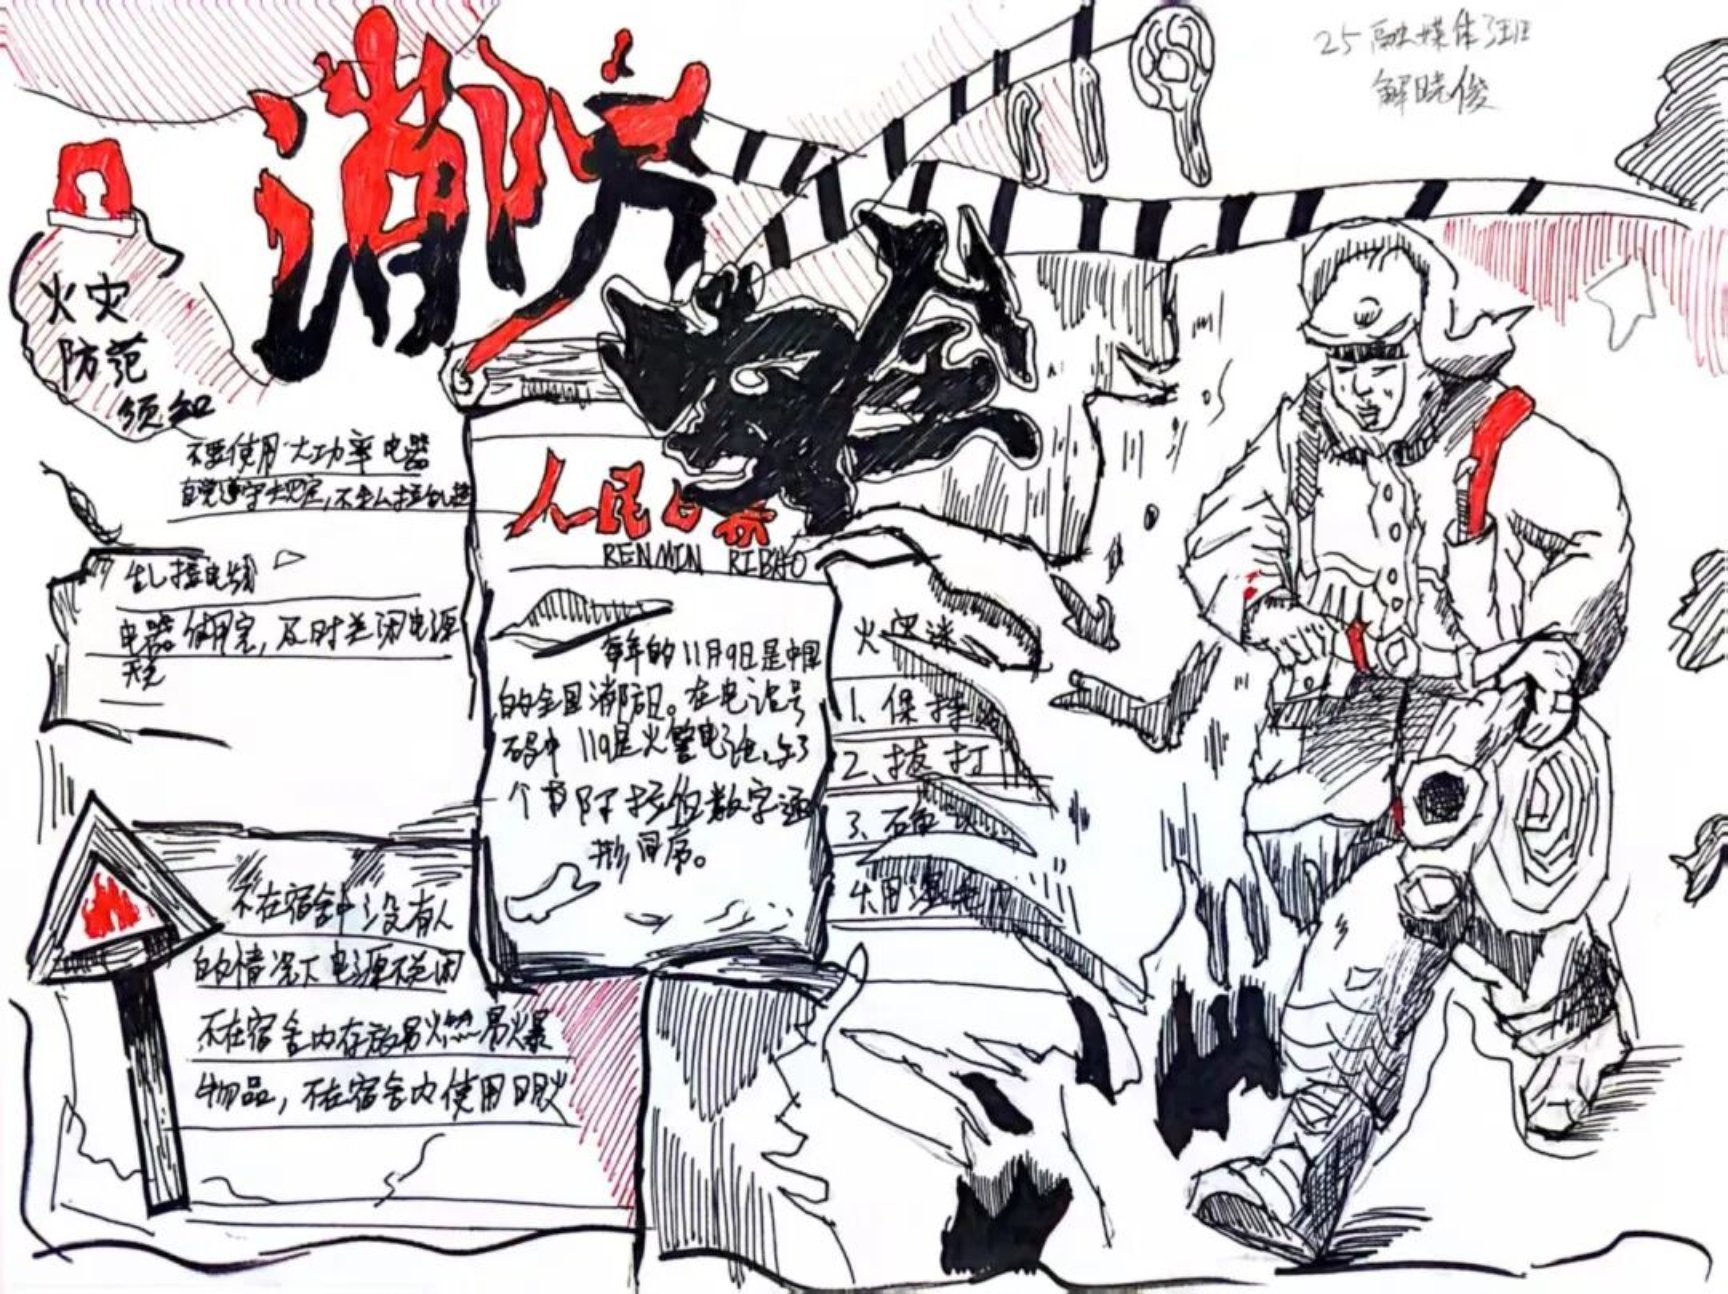 25融媒体班
解晓俊
消防安全
火灾
防范
须知
不要使用大功率电器
自觉遵守
乱接电线
电器使用完,及时关闭电源
不在宿舍中没有人
的情况下电源不关闭
不在宿舍内存放易燃易爆
物品,不在宿舍内使用明火
人民日报
RENMIN RIBAO
每年的11月9日是中国
的全国消防日。在电话号
码中119是火警电话,与
数字
形同序。
火灾逃
1、保持
2、拨打
3、
4、用湿毛巾